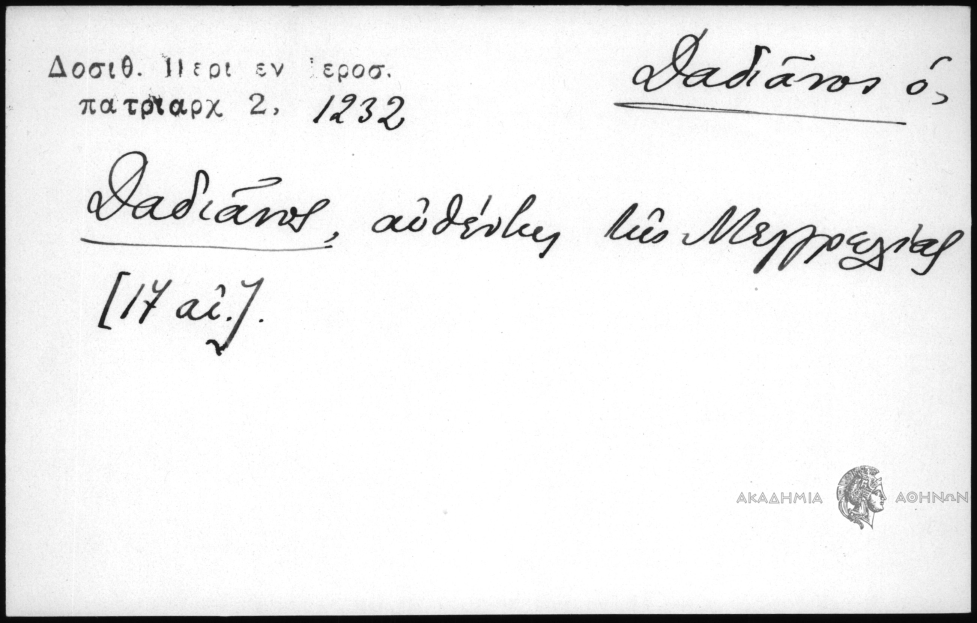 Δοσιθ. Περι εν Ιεροσ.
πατριαρχ 2, 1232
Δαδιᾶνος ὁ,
Δαδιᾶνος, αὐθέντης τῆς Μεγγρελίας
[17 αἰ.].
ΑΚΑΔΗΜΙΑ ΑΘΗΝΩΝ